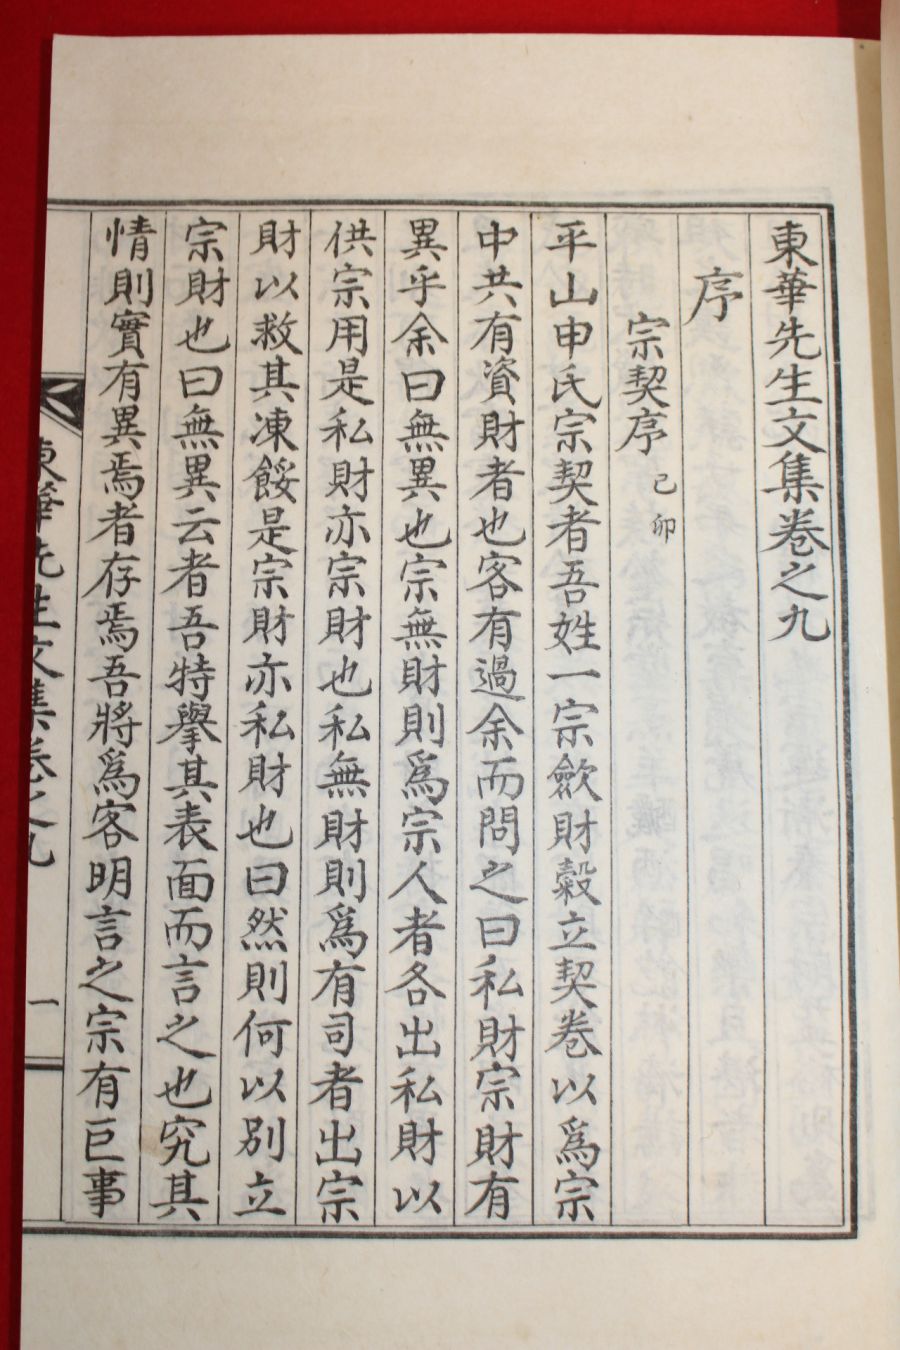 東華先生文集卷之九
序
宗契序 己卯
平山申氏宗契者吾姓一宗斂財穀立契卷以爲宗
中共有資財者也客有過余而問之曰私財宗財有
異乎余曰無異也宗無財則爲宗人者各出私財以
供宗用是私財亦宗財也私無財則爲有司者出宗
財以救其凍餒是宗財亦私財也曰然則何以別立
宗財也曰無異云者吾特擧其表面而言之也究其
情則實有異焉者存焉吾將爲客明言之宗有巨事
東華先生文集卷之九 一